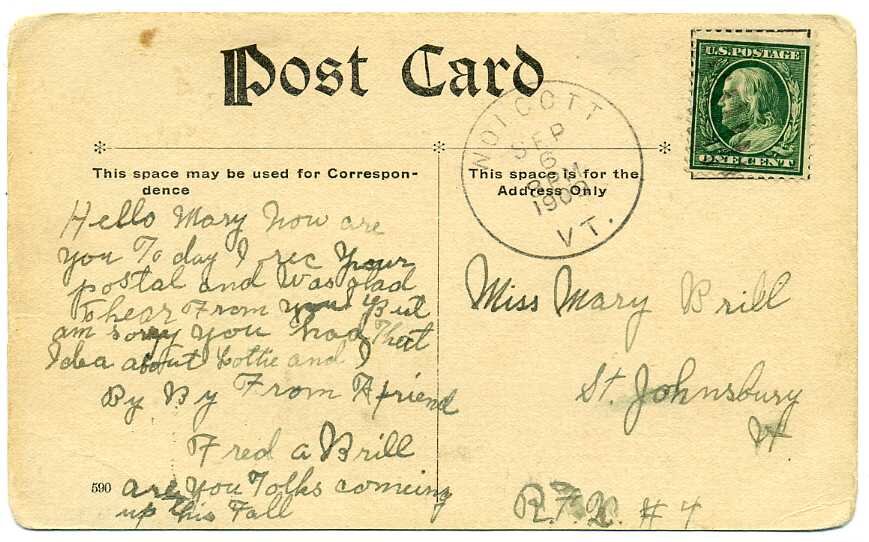 Post Card
U.S. POSTAGE
ONE CENT
WOLCOTT
SEP
6
PM
1909
VT.
This space may be used for Correspon-
dence
This space is for the
Address Only
Hello Mary how are
you To day I rec your
postal and was glad
To hear From you But
am sorry you had That
Idea about Lottie and I
By By From A friend
Fred a Brill
590
are you Folks comeing
up This Fall
Miss Mary Brill
St. Johnsbury
Vt
R.F.D. # 4